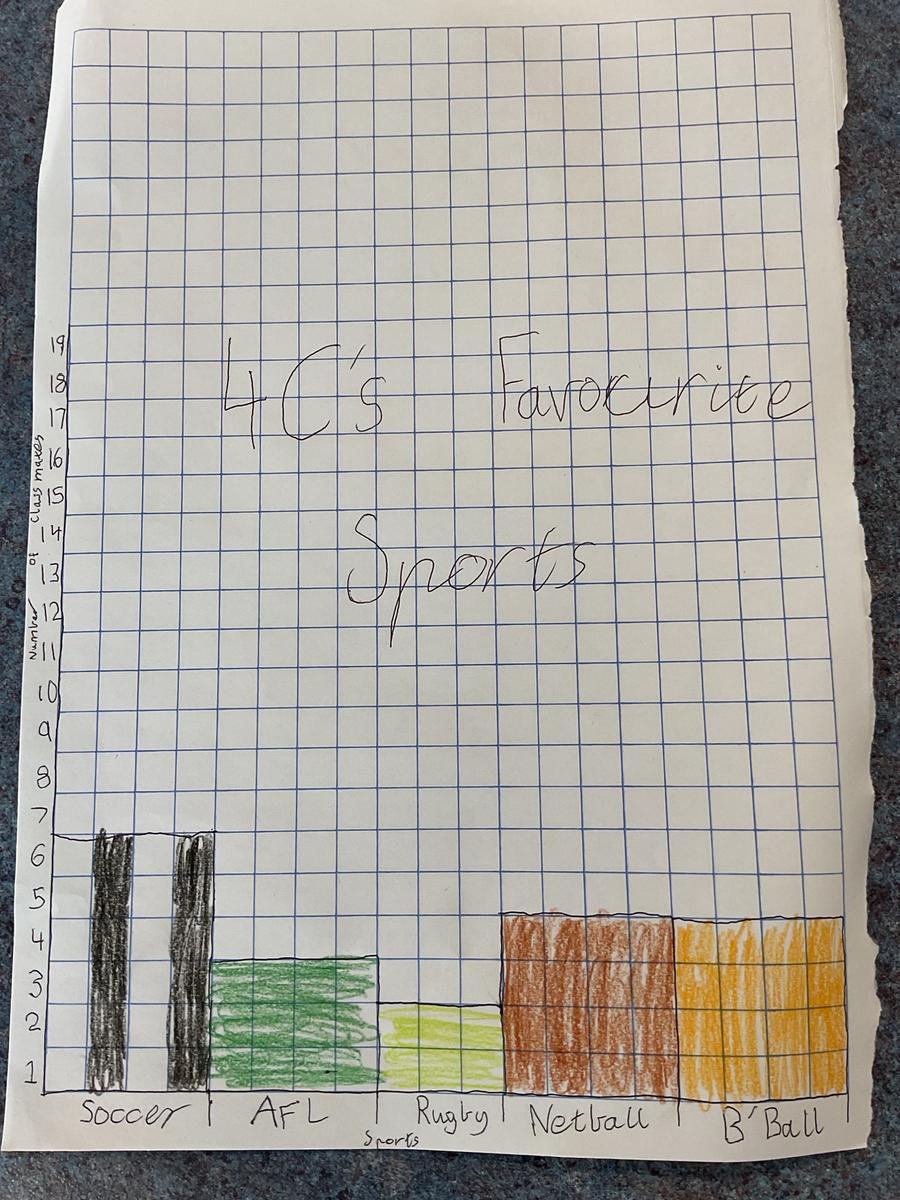 4C's Favourite
Sports
Number of Classmates
19
18
17
16
15
14
13
12
11
10
9
8
7
6
5
4
3
2
1
Soccer AFL Rugby Netball B'Ball
Sports